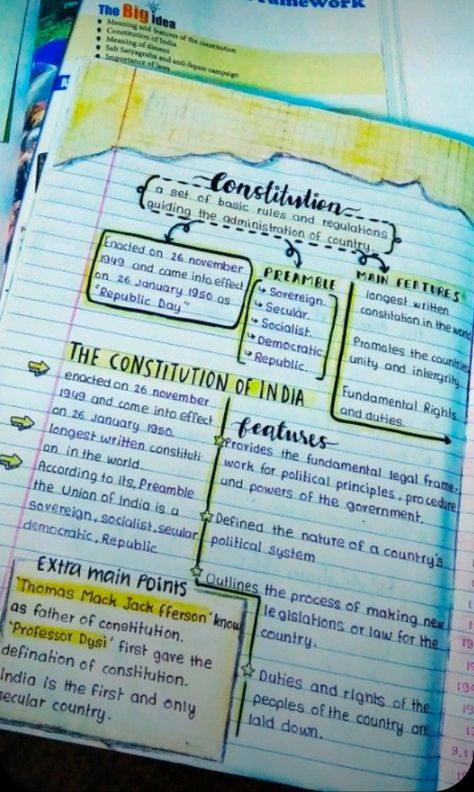 The Big idea
Meaning and features of the constitution
Constitution of India
Meaning of dissent
Salt Satyagraha and anti-liquor campaign
Importance of laws
Constitution
a set of basic rules and regulations
guiding the administration of country.
Enacted on 26 november
1949 and came into effect
on 26 January 1950 as
"Republic Day"
PREAMBLE
Sovereign.
Secular.
Socialist.
Democratic
Republic.
MAIN FEATURES
longest written
constitution in the world
Promotes the countries
unity and intergrity.
Fundamental Rights
and duties.
THE CONSTITUTION OF INDIA
enacted on 26 november
1949 and came into effect
on 26 January 1950.
longest written constituti-
on in the world.
According to its, Preamble
the Union of India is a
sovereign, socialist, secular
democratic, Republic
features
Provides the fundamental legal frame-
work for political principles, procedure
and powers of the government.
Defined the nature of a country's
political system
Outlines the process of making new
legislations or law for the
country.
Duties and rights of the
peoples of the country are
laid down.
Extra main Points
'Thomas Mack Jack fferson' know
as father of constitution.
'Professor Dysi' first gave the
defination of constitution.
India is the first and only
secular country.